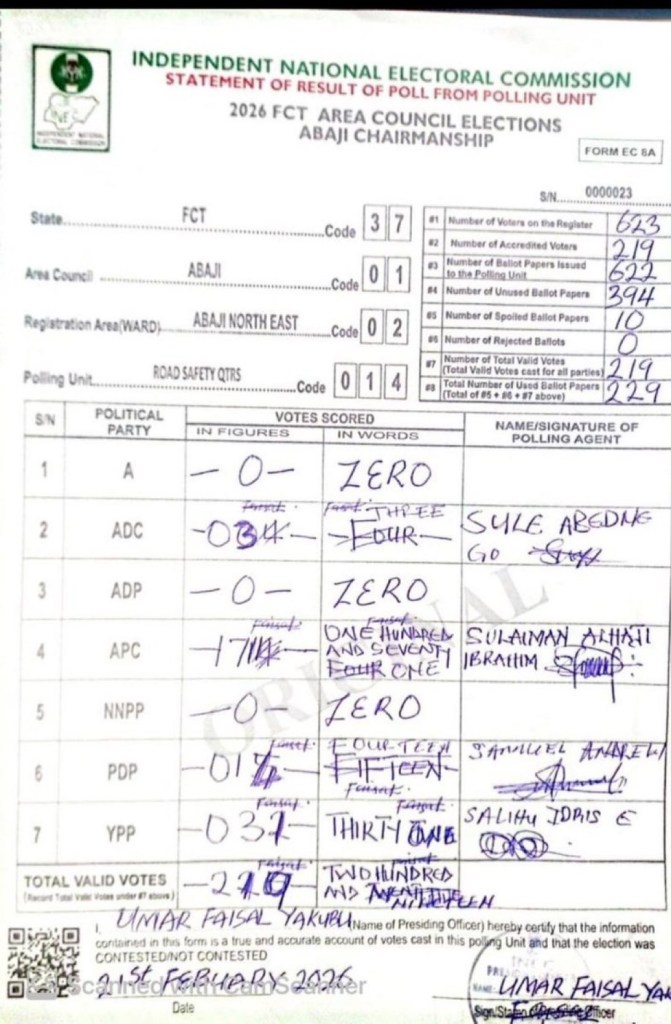 INDEPENDENT NATIONAL ELECTORAL COMMISSION
STATEMENT OF RESULT OF POLL FROM POLLING UNIT
2026 FCT AREA COUNCIL ELECTIONS
ABAJI CHAIRMANSHIP
FORM EC 8A
INEC
INDEPENDENT NATIONAL
ELECTORAL COMMISSION
S/N 0000023
State FCT Code 3 7
Area Council ABAJI Code 0 1
Registration Area(WARD) ABAJI NORTH EAST Code 0 2
Polling Unit ROAD SAFETY QTRS Code 0 1 4
#1 Number of Voters on the Register 623
#2 Number of Accredited Voters 219
#3 Number of Ballot Papers Issued to the Polling Unit 622
#4 Number of Unused Ballot Papers 394
#5 Number of Spoiled Ballot Papers 10
#6 Number of Rejected Ballots 0
#7 Number of Total Valid Votes (Total Valid Votes cast for all parties) 219
#8 Total Number of Used Ballot Papers (Total of #5 + #6 + #7 above) 229
S/N POLITICAL PARTY VOTES SCORED NAME/SIGNATURE OF POLLING AGENT
IN FIGURES IN WORDS
1 A -0- ZERO
2 ADC THREE FOUR SULE ABEDNE GO
3 ADP -0- ZERO
4 APC ONE HUNDRED AND SEVENTY FOUR ONE SULAIMAN ALHAJI IBRAHIM
5 NNPP -0- ZERO
6 PDP FOURTEEN FIFTEEN SAMUEL
7 YPP THIRTY ONE SALIHU IDRIS E
TOTAL VALID VOTES TWO HUNDRED AND NINETEEN
(Record Total Valid Votes under #7 above)
ORIGINAL
I, UMAR FAISAL YAKUBU (Name of Presiding Officer) hereby certify that the information
contained in this form is a true and accurate account of votes cast in this polling Unit and that the election was
CONTESTED/NOT CONTESTED
21st FEBUARY 2026
Date
NAME: UMAR FAISAL YAK
Sign/Stamp Officer
Scanned with CamScanner